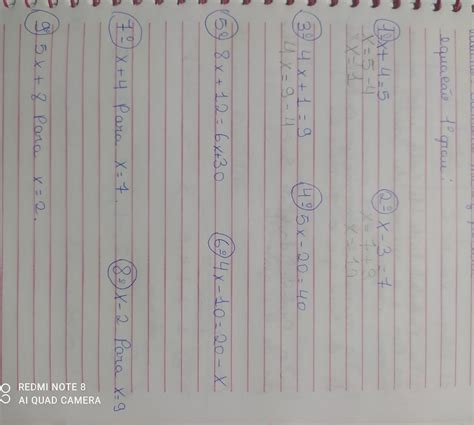 equação 1º grau:
1º x + 4 = 5
x = 5 - 4
x = 1
2º x - 3 = 7
3º 4x + 1 = 9
4x = 9 - 4
4º 5x - 20 = 40
5º 8x + 12 = 6x + 30
6º 4x - 10 = 20 - x
7º x + 4 Para x = 7.
8º x - 2 Para x = 9
9º 5x + 8 Para x = 2.
REDMI NOTE 8
AI QUAD CAMERA